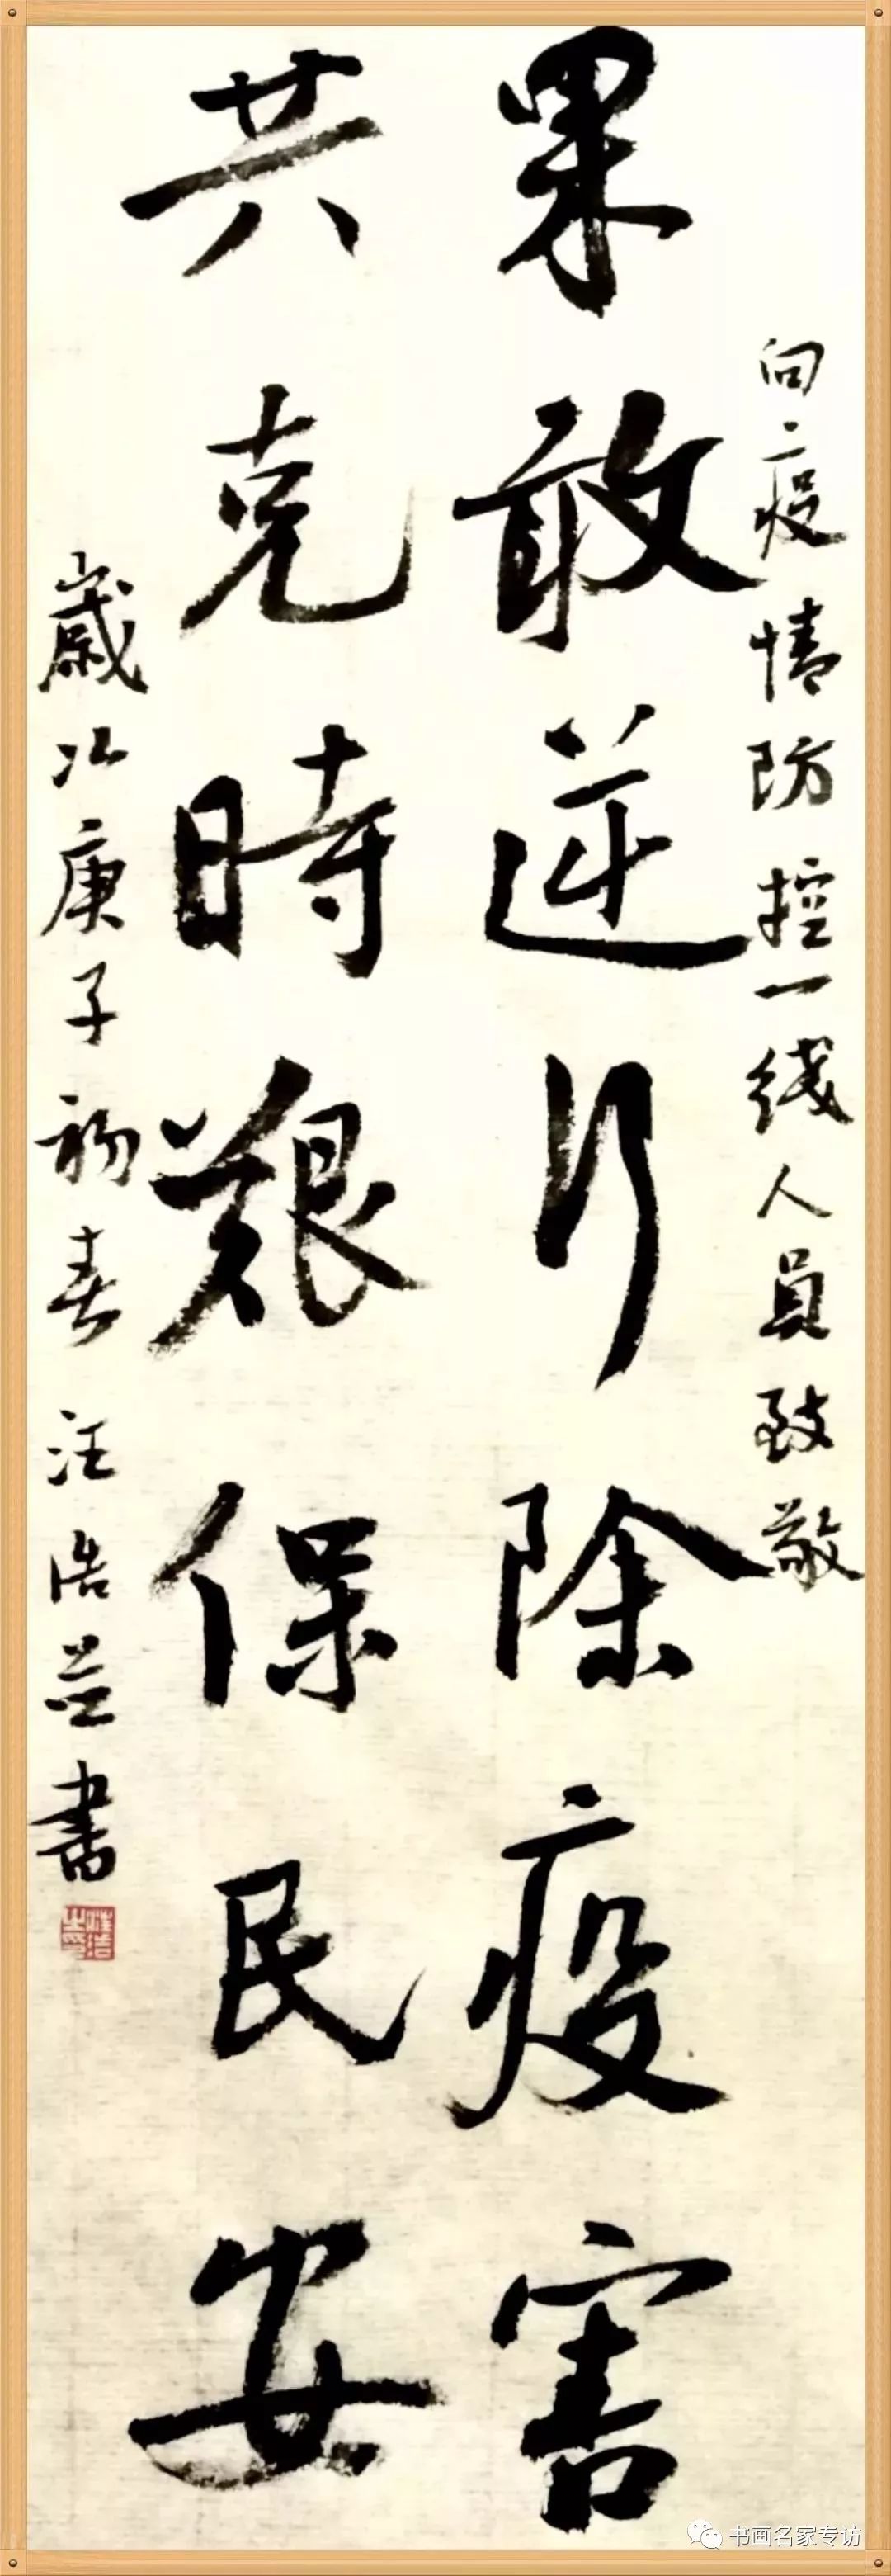 向疫情防控一线人员致敬
果敢逆行除疫害
共克時艱保民安
歲次庚子初春 汪浩並書
汪浩之印
书画名家专访